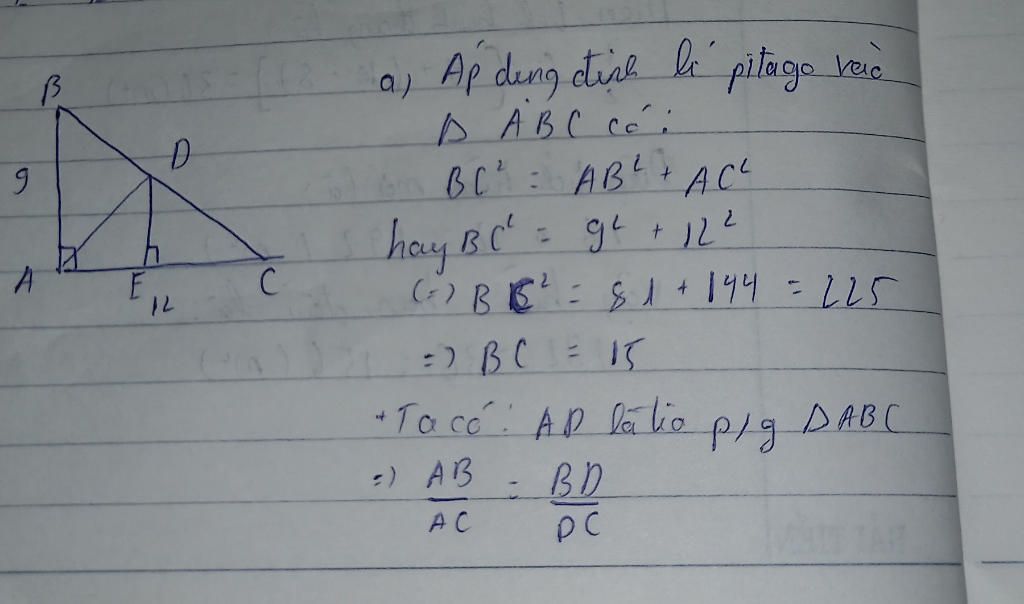 B
D
9
A
E
12
C
a) Áp dụng định lí pitago vào
Δ ABC có:
BC² = AB² + AC²
hay BC² = 9² + 12²
(=) BC² = 81 + 144 = 225
=) BC = 15
+ Ta có: AD là tia p/g ΔABC
=) AB/AC = BD/DC